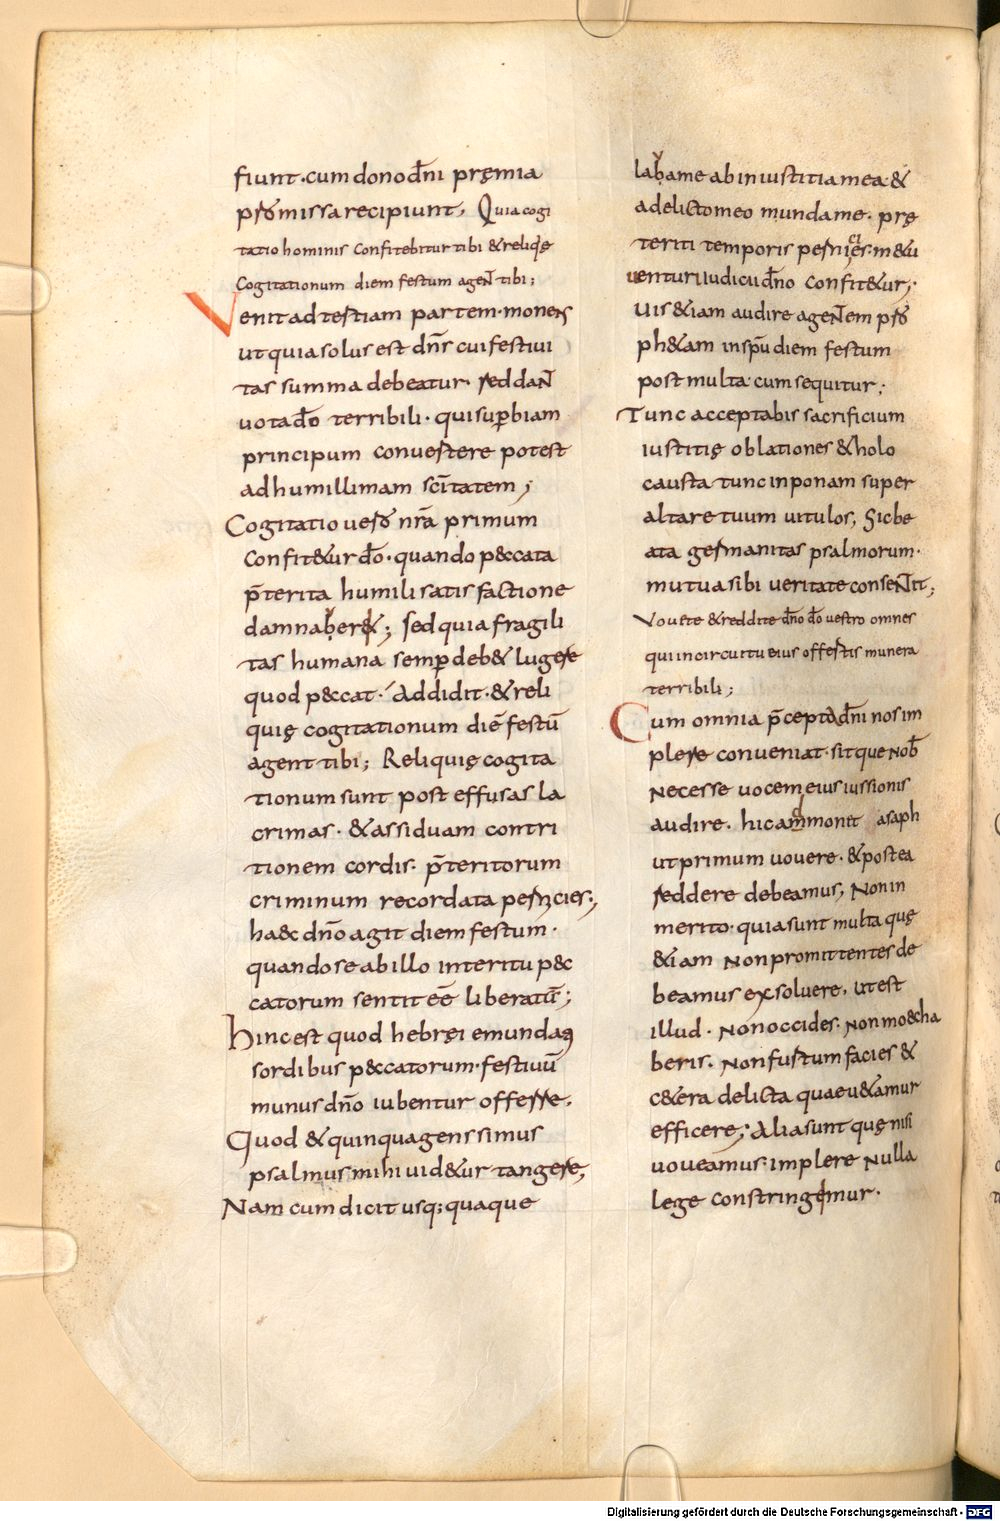 fiunt·cum dono dn̄i pręmia
promissa recipiunt, Quia cogi
tatio hominis confitebitur tibi & reliqię
cogitationum diem festum agen̄t tibi;
Venit ad tertiam partem·monens
ut quia solus est dn̄s cui festiui
tas summa debeatur· reddan̄t
uota dō terribili·qui sup̄biam
principum conuertere potest
ad humillimam sc̄itatem;
Cogitatio uero nr̄a primum
confit&ur dō·quando peccata
p̄terita humili satisfactione
damnab&;sed quia fragili
tas humana semp̄ deb& lugere
quod peccat·Addidit·& reli
quię cogitationum diē festū
agent tibi; Reliquię cogita
tionum sunt post effusas la
crimas·& assiduam contri
tionem cordis·p̄teritorum
criminum recordata pernicies;
haec dn̄o agit diem festum·
quando se ab illo interitu pec
catorum sentit eē liberatū;
hinc est quod hebręi emundati
sordibus peccatorum·festiuū
munus dn̄o iubentur offerre·
Quod & quinquagenssimus
psalmus mihi uid&ur tangere,
Nam cum dicit usq;quaque
laba me ab iniustitia mea·&
a delicto meo munda me·prę
teriti temporis pernicies·m&u
uenturi iudicii dn̄o confit&ur;
Uis &iam audire agen̄tem pro
ph&am in sp̄u diem festum
post multa·cum sequitur;
Tunc acceptabis sacrificium
iustitię oblationes & holo
causta tunc inponam super
altare tuum uitulos, Sic be
ata germanitas psalmorum·
mutua sibi ueritate consen̄tit;
Vouete & reddite dn̄o dō uestro omnes
qui in circuitu eius offertis munera
terribili;
Cum omnia p̄cepta dn̄i nos im
plere conueniat·sitque nob̄
necesse uocem eius iussionis
audire·hic ammonet asaph
ut primum uouere·& postea
reddere debeamus, Non in
merito·quia sunt multa quę
&iam non promittentes de
beamus exsoluere, ut est
illud·Non occides·Non moecha
beris·Non furtum facies &
c&era delicta quae u&amur
efficere; Alia sunt quę nisi
uoueamus·implere nulla
lege constringimur·
Digitalisierung gefördert durch die Deutsche Forschungsgemeinschaft - DFG